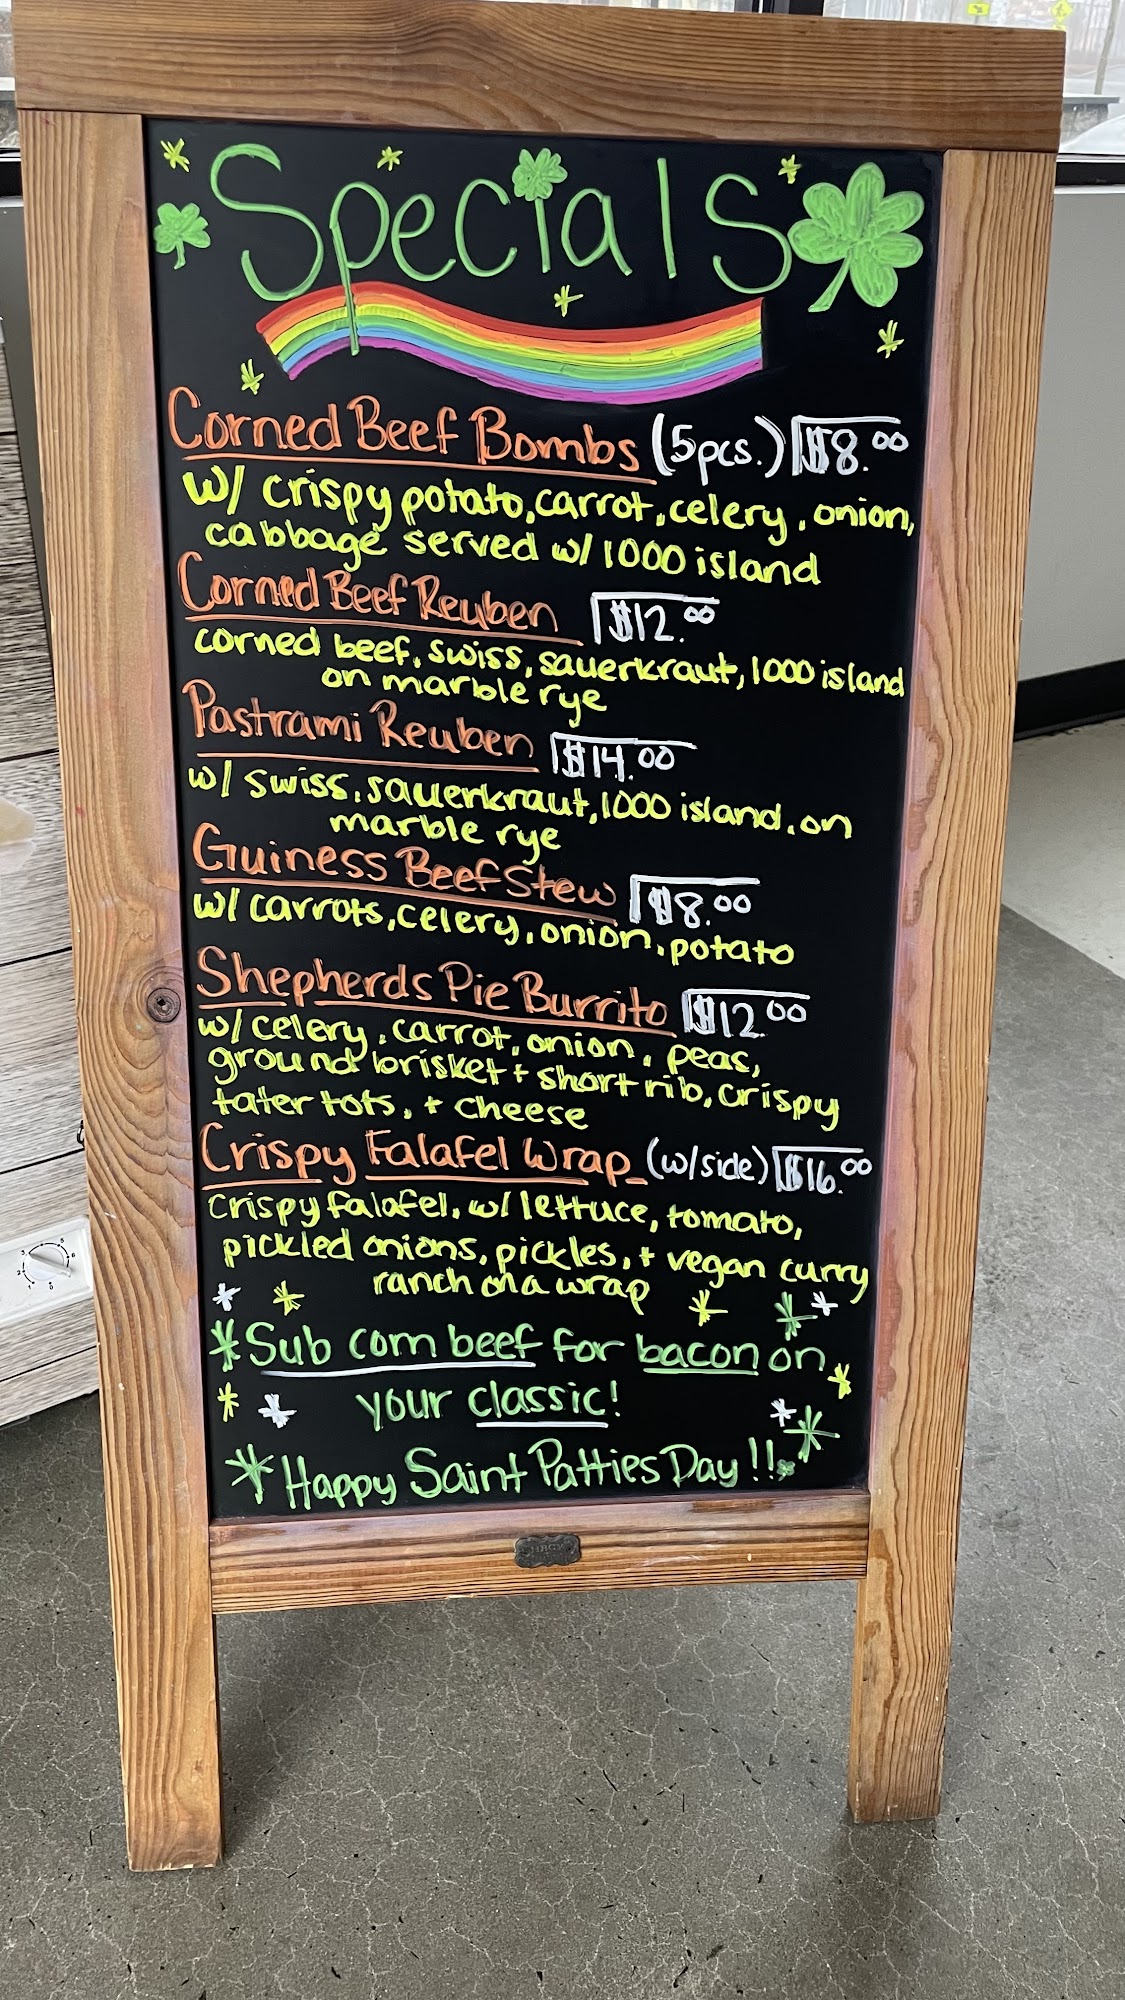 Specials
Corned Beef Bombs (5pcs.) $8.00
w/ crispy potato, carrot, celery, onion,
cabbage served w/ 1000 island
Corned Beef Reuben $12.00
corned beef, swiss, sauerkraut, 1000 island
on marble rye
Pastrami Reuben $14.00
w/ swiss, sauerkraut, 1000 island, on
marble rye
Guiness Beef Stew $8.00
w/ carrots, celery, onion, potato
Shepherds Pie Burrito $12.00
w/ celery, carrot, onion, peas,
ground brisket + short rib, crispy
tater tots, + cheese
Crispy Falafel Wrap (w/side) $16.00
crispy falafel, w/ lettuce, tomato,
pickled onions, pickles, + vegan curry
ranch on a wrap
*Sub corn beef for bacon on
your classic!
*Happy Saint Patties Day!!